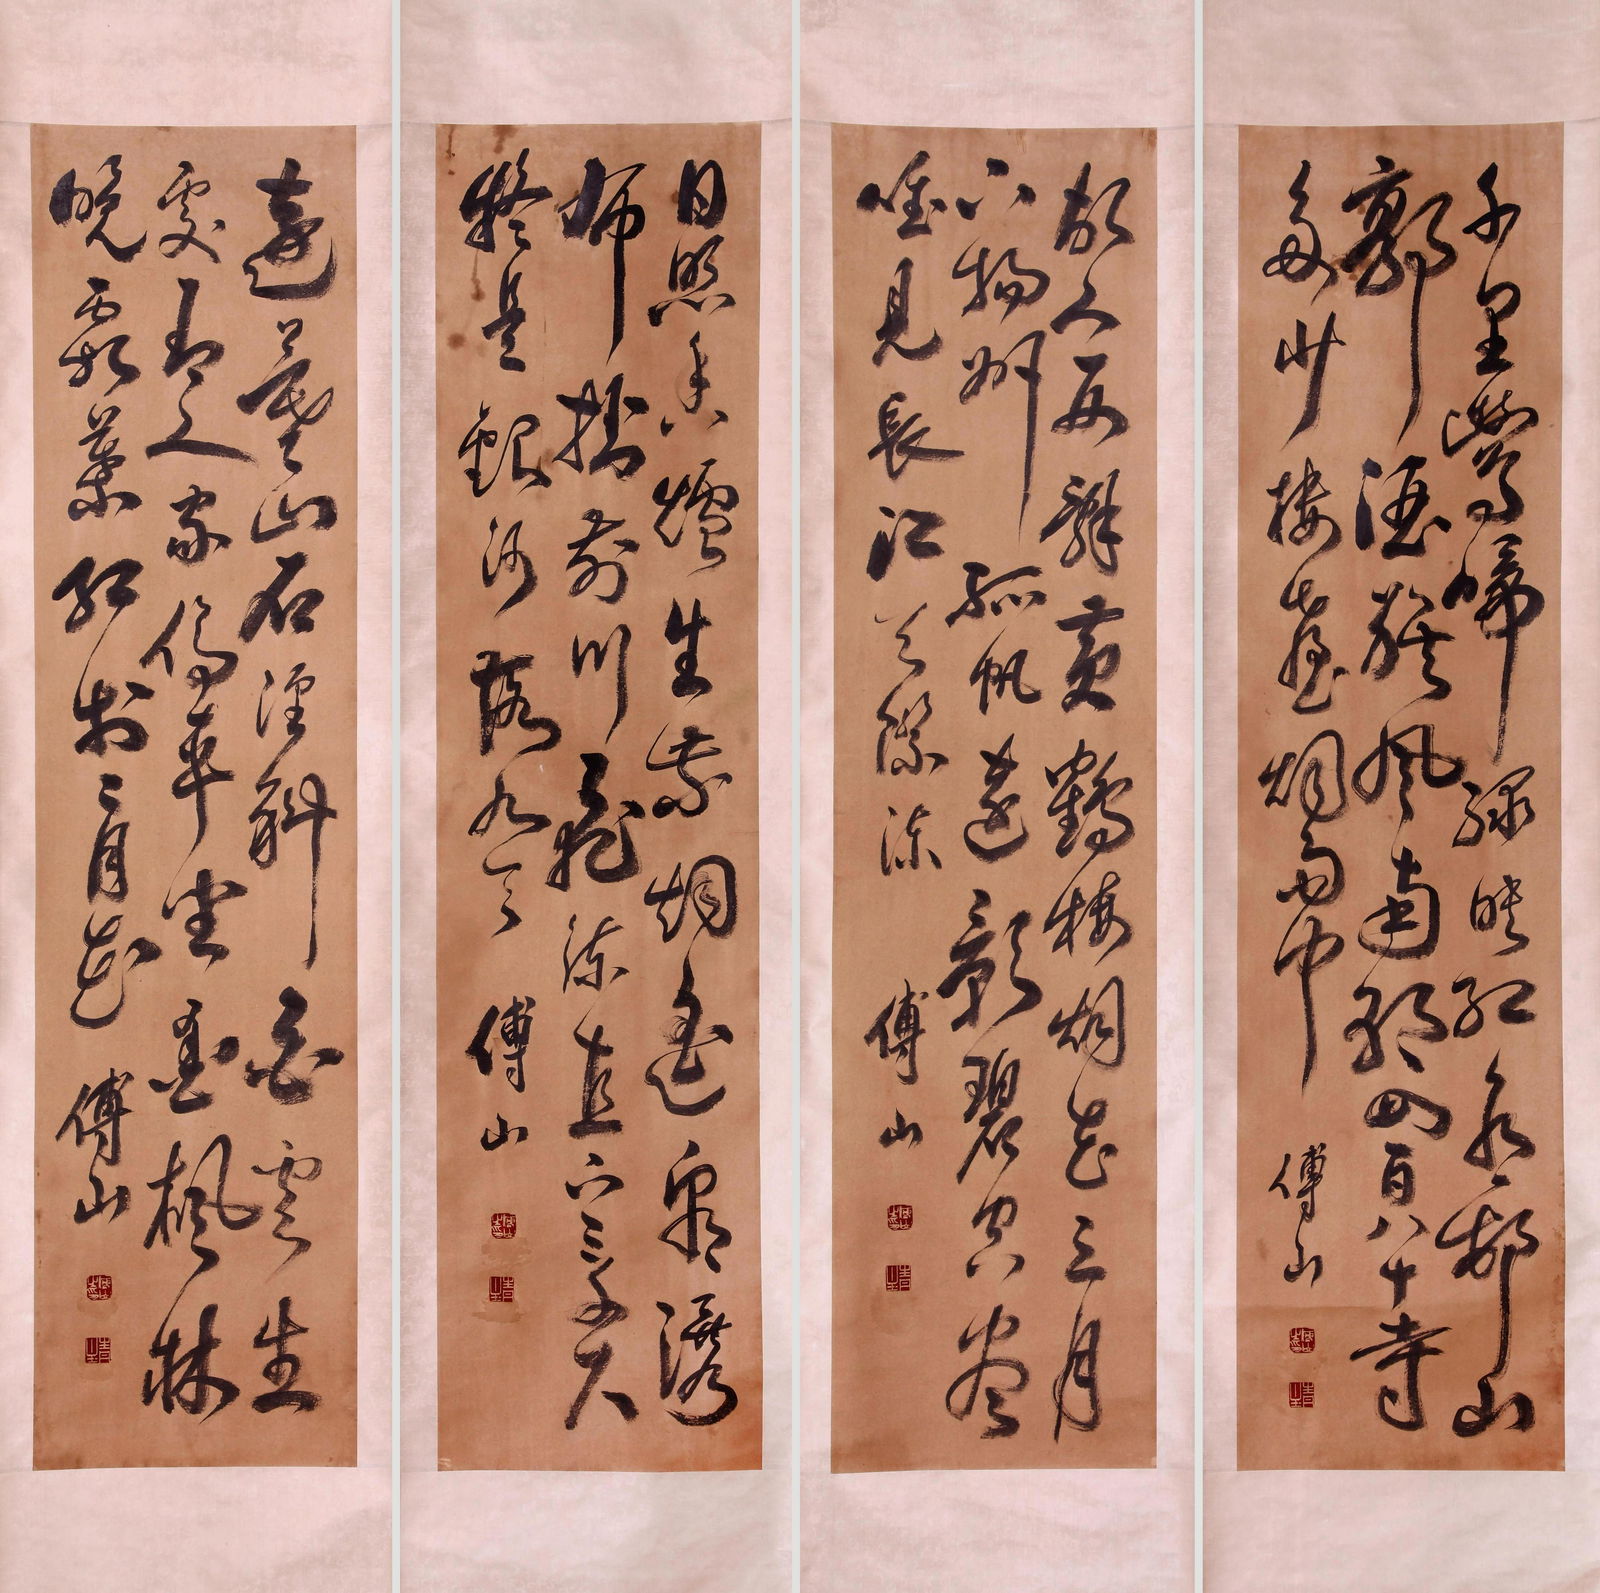 千里鶯啼綠映紅水郭山
郭酒旗風南朝四百八十寺
多少樓臺烟雨中
傅山
故人西辭黃鶴樓烟花三月
下揚州孤帆遠影碧空盡
唯見長江天際流
傅山
日照香爐生紫烟遙看瀑
布掛前川飛流直下三千尺
疑是銀河落九天
傅山
遠上寒山石徑斜白雲生
處有人家停車坐愛楓林
晚霜葉紅於二月花
傅山